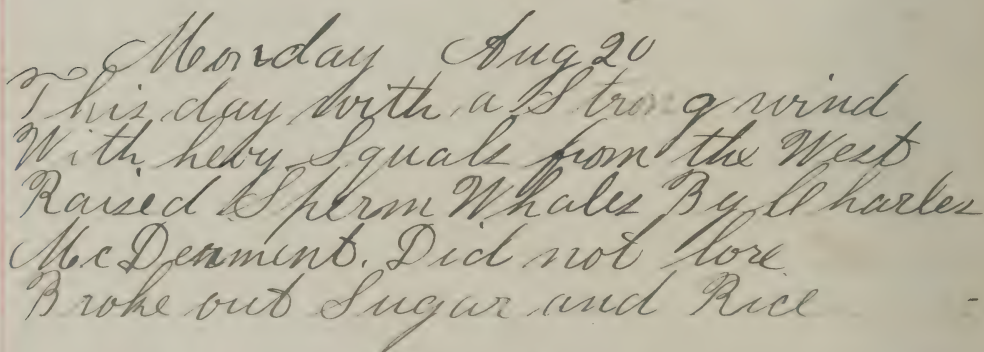 Monday Aug 20
This day with a Strong wind
With hevy Squals from the West
Raised Sperm Whales By Charles
McDenment. Did not lore
Broke out Sugar and Rice